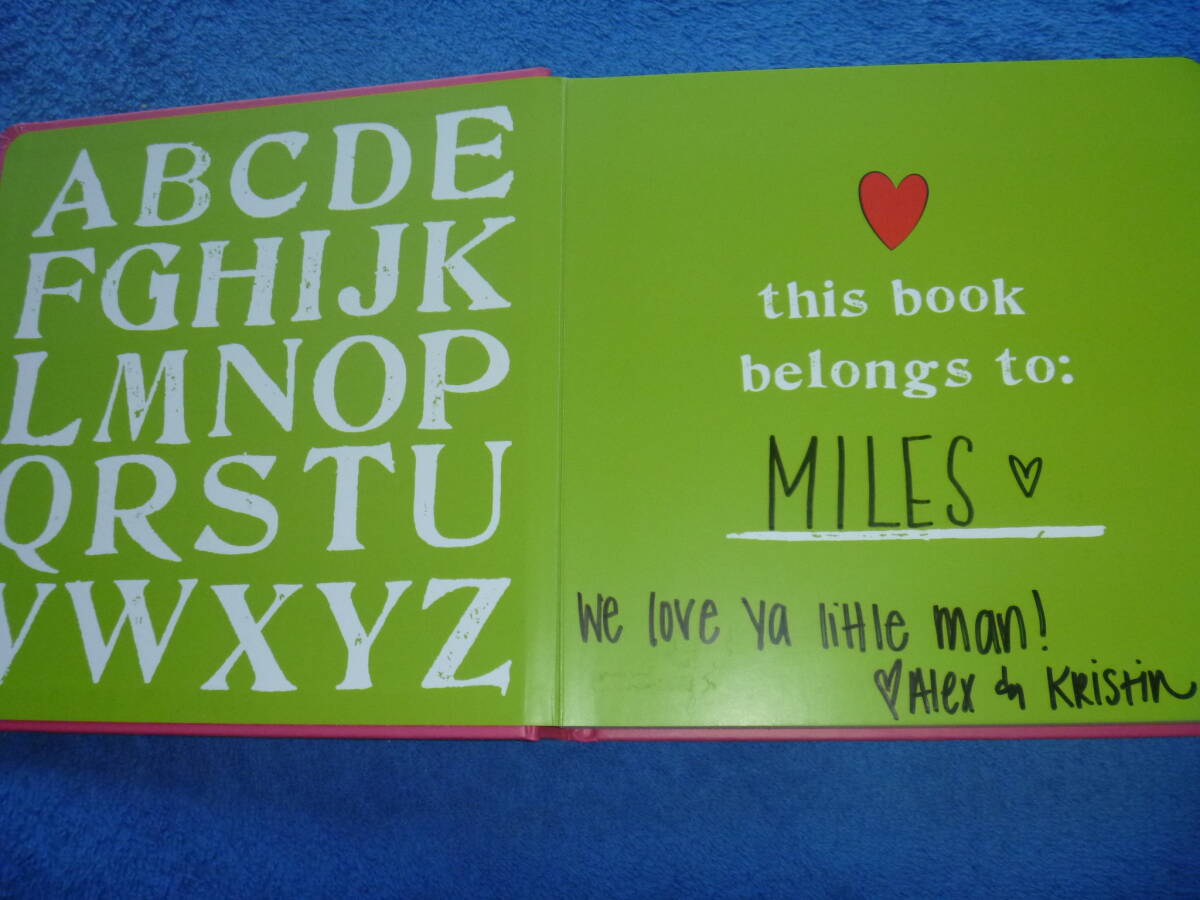 ABCDE
FGHIJK
LMNOP
QRSTU
VWXYZ
this book
belongs to:
MILES
We love ya little man!
Alex & Kristin